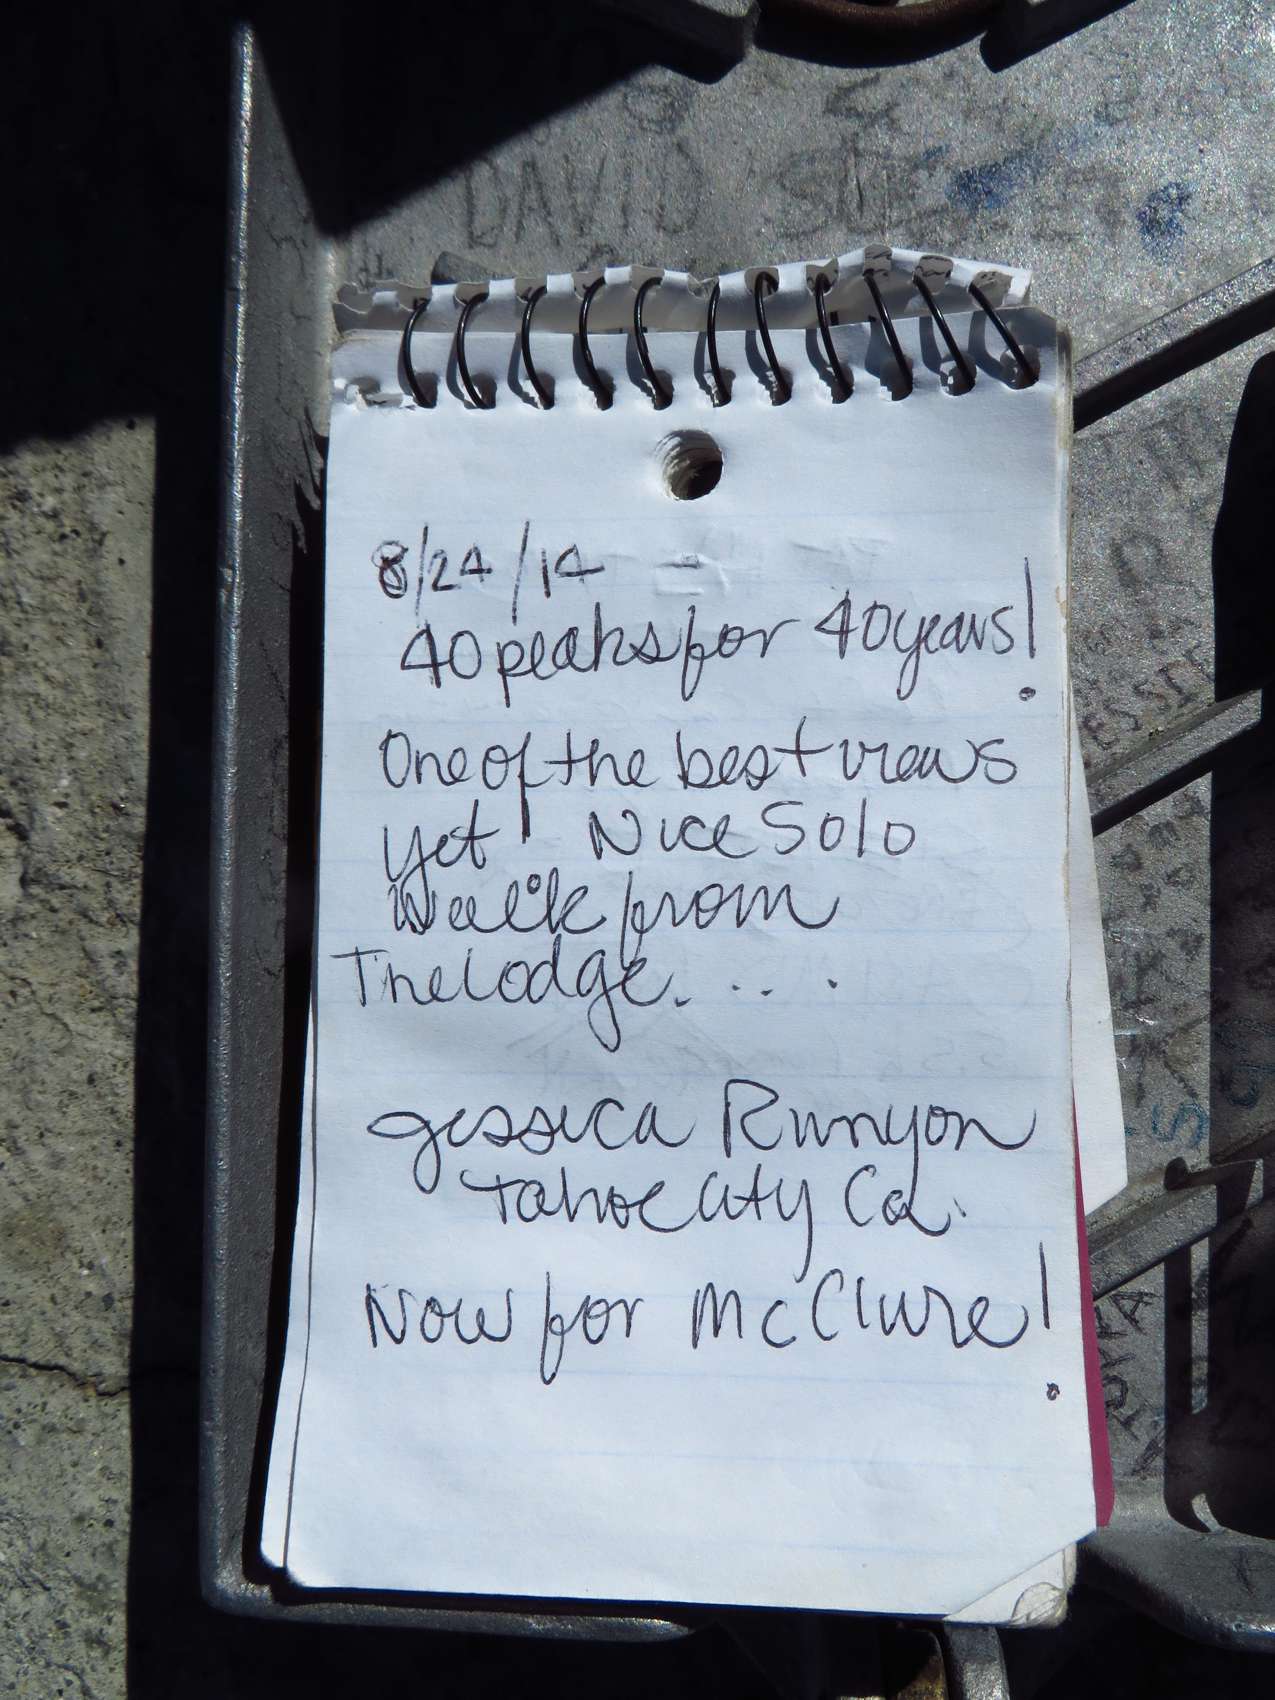 DAVID
8/24/14
40 peaks for 40 years!
One of the best views
yet! Nice Solo
Walk from
The Lodge. . . .
Jessica Runyon
Tahoe City Ca.
Now for McClure!